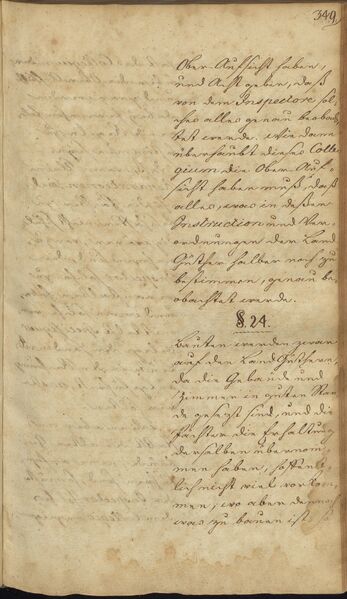 349.
Ober-Aufsicht haben,
und Acht geben, daß
von dem Inspectore, sol-
ches alles genau beobach-
tet werde. Wie dann
überhaubt dieses Colle-
gium die Ober-Auf-
sicht haben muß, daß
alles, was in deßen
Instruction und Ver-
ordnungen der Land
Güther halber noch zu
bestimmen, genau be-
obachtet werde.
§. 24.
Bauten werden zwar
auf den Land Güthern,
da die Gebäude und
Zimmer in guten Stan-
de gesezt sind, und die
Pachter die Erhaltung
derselben übernom-
men haben, hoffent-
lich nicht viel vorkom-
men, wo aber dennoch
was zu bauen ist, so